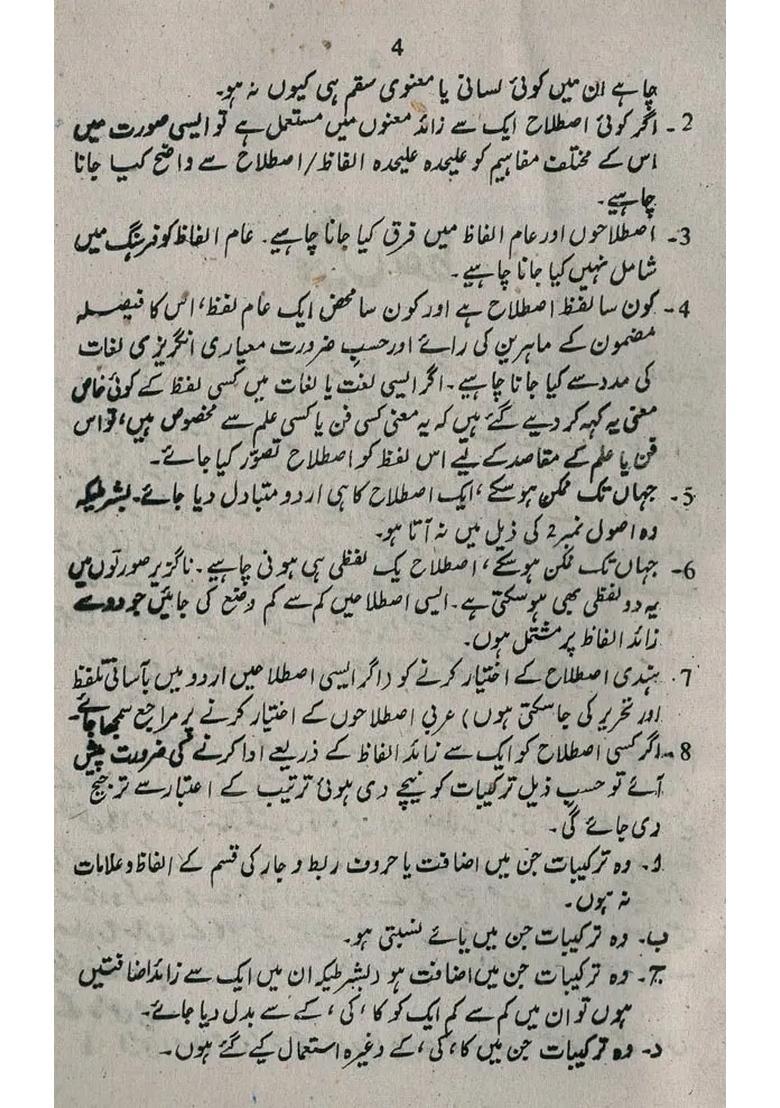 4
چاہے ان میں کوئی لسانی یا معنوی سقم ہی کیوں نہ ہو۔
2۔ اگر کوئی اصطلاح ایک سے زائد معنوں میں مستعمل ہے تو ایسی صورت میں
اس کے مختلف مفاہیم کو علیحدہ علیحدہ الفاظ/اصطلاح سے واضح کیا جانا
چاہیے۔
3۔ اصطلاحوں اور عام الفاظ میں فرق کیا جانا چاہیے۔ عام الفاظ کو فرہنگ میں
شامل نہیں کیا جانا چاہیے۔
4۔ کون سا لفظ اصطلاح ہے اور کون سا محض ایک عام لفظ، اس کا فیصلہ
مضمون کے ماہرین کی رائے اور حسب ضرورت معیاری انگریزی لغات
کی مدد سے کیا جانا چاہیے۔ اگر ایسی لغت یا لغات میں کسی لفظ کے کوئی خاص
معنی یہ کہہ کر دیے گئے ہیں کہ یہ معنی کسی فن یا کسی علم سے مخصوص ہیں، تو اس
فن یا علم کے مقاصد کے لیے اس لفظ کو اصطلاح تصوّر کیا جائے۔
5۔ جہاں تک ممکن ہو سکے، ایک اصطلاح کا ہی اردو متبادل دیا جائے۔ بشرطیکہ
وہ اصول نمبر 2 کی ذیل میں نہ آتا ہو۔
6۔ جہاں تک ممکن ہو سکے، اصطلاح یک لفظی ہی ہونی چاہیے۔ ناگزیر صورتوں میں
یہ دو لفظی بھی ہو سکتی ہے۔ ایسی اصطلاحیں کم سے کم وضع کی جائیں جو دو سے
زائد الفاظ پر مشتمل ہوں۔
7۔ ہندی اصطلاح کے اختیار کرنے کو (اگر ایسی اصطلاحیں اردو میں بآسانی تلفظ
اور تحریر کی جا سکتی ہوں) عربی اصطلاحوں کے اختیار کرنے پر مراجع سمجھا جائے۔
8۔ اگر کسی اصطلاح کو ایک سے زائد الفاظ کے ذریعے ادا کرنے کی ضرورت پیش
آئے تو حسب ذیل ترکیبات کو نیچے دی ہوئی ترتیب کے اعتبار سے ترجیح
دی جائے گی۔
ا۔ وہ ترکیبات جن میں اضافت یا حروف ربط و جار کی قسم کے الفاظ و علامات
نہ ہوں۔
ب۔ وہ ترکیبات جن میں یائے نسبتی ہو۔
ج۔ وہ ترکیبات جن میں اضافت ہو (بشرطیکہ ان میں ایک سے زائد اضافتیں
ہوں تو ان میں کم سے کم ایک کو کا، کی، کے سے بدل دیا جائے۔
د۔ وہ ترکیبات جن میں کا، کی، کے وغیرہ استعمال کیے گئے ہوں۔